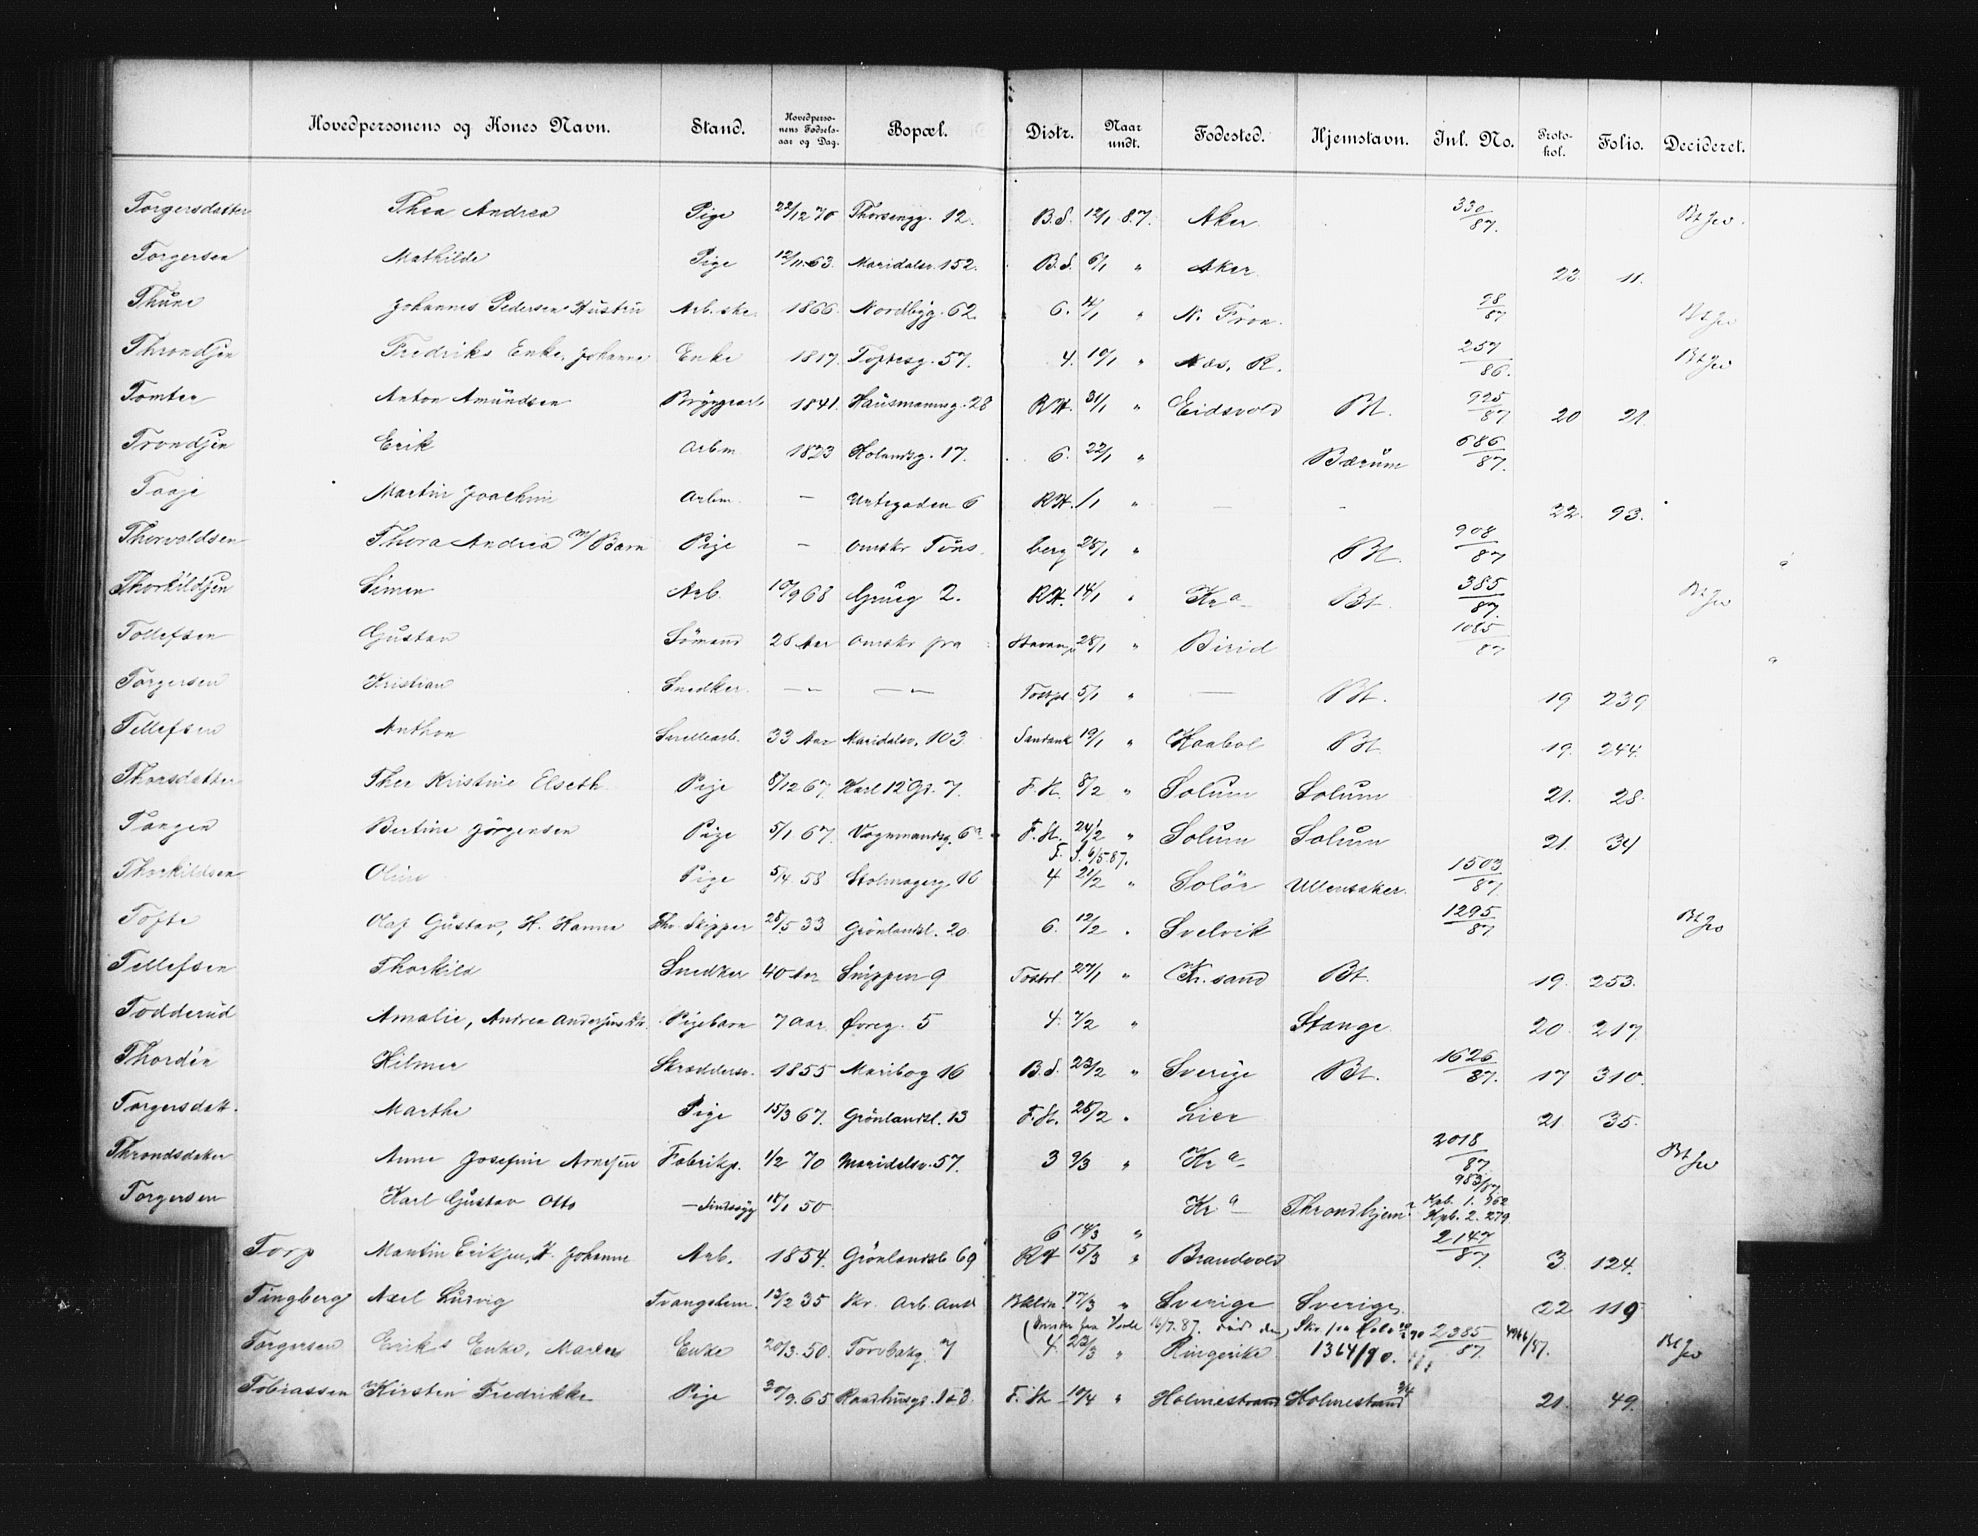 Hovedpersonens og Kones Navn. Stand. Hovedpersonens Fødselsaar og Dag. Bopæl. Distr. Naar undt. Fødested. Hjemstavn. Inl. No. Protokol. Folio. Decideret.
Torgersdatter Thea Andrea Pige 22/12 70 Thorsengg. 12. B.S. 12/1 87. Aker 330/87. Bt Jev.
Torgersen Mathilde Pige 12/11 63. Maridalsv. 152. B.S. 6/1 " Aker 22. 11.
Thune Johannes Pedersen Hustru Arb.ske. 1866. Nordbyg. 62. 6. 14/1 " N. Fron. 98/87
Throndsen Fredriks Enke, Johanne Enke 1817. Toftesg. 57. 4. 10/1 " Næs, R. 257/86.
Tomter Anton Amundsen Bryggearb 1841. Hausmannsg. 28 RH. 31/1 " Eidsvold Bt. 925/87 20 21.
Trondsen Erik Arbm 1823 Holandsg. 17. 6. 22/1 " Bærum 686/87.
Taaje Martin Joachim Arbm. — Urtegaden 6 RH. 1/1 " — - 22. 93.
Thorvaldsen Thora Andrea m/Barn Pige — Omskr Tøns. berg 25/1 " Bt. 908/87
Thorkildsen Simen Arb. 10/9 68 Grueg 2. RH. 14/1 " Kra Bt. 385/87.
Tollefsen Gustav Sømand 28 Aar Omskr fra Stavang. 28/1 " Birid 1085/87
Torgersen Kristian Snedker. —"— —"— Tostpl. 5/1 " — Bt. 19 239
Tellefsen Anthon 33 Aar Maridalsv. 103 19/1 " Haabøl Bt. 19. 244.
Thorsdatter Thea Kristine Elseth Pige 8/12 67. Karl 12 Gr. 7. F.H. 8/2 " Solum Solum 21. 28.
Tangen Bertine Jørgensen Pige 5/1 67. Vognmandsg. 6 F.H. 24/2 " Solum Solum 21. 34
6/5 87.
Thorkildsen Oline Pige 5/4 58 Stolmagerg. 16 4 21/2 " Solør Ullensaker. 1503/87.
Tofte Olaf Gustav, H. Hanna Fhv. Skipper 28/5 33 Grönlandsl. 20 6. 12/2 " Svelvik 1295/87
Tellefsen Thorkild Snedker 40 Aar Snippen 9 27/1 " Kr.sand Bt. 19. 253.
Todderud Amalie, Andrea Pigebarn 7 Aar. Øvreg. 5 4. 7/2 " Stange 20. 217
Thordén Hilmer Skræddersv. 1855 Maribog 16 B.S. 23/2 " Sverige Bt. 1626/87. 17 310.
Torgersdatt. Marthe Pige 15/3 67. Grönlandsl. 13 F.H. 28/2 " Lier 21. 35.
Throndsdatter Anne Josefine Arnesen Fabrikp. 1/2 70 Maridalsv. 57. 3 9/3 " Kra 2018/87.
Torgersen Karl Gustav Otto Sindssyg 18/1 50 Kra Throndhjem 953/87 Kpb. 1. 962 Kpb. 2. 279
6 14/3 "
Torp Martin Eriksen, H. Johanne Arb. 1854. Grönlandsl 69 RH 15/3 " Brandvold 2147/87. 3. 124.
Tingberg Axel Ludvig Tvangslem. 13/2 35 Kr. Arb. Anst 17/3 " Sverige Sverige. 22 119
16/7. 87.
Torgersen Eriks Enke, Maren Enke 20/3. 50. Torvbakg. 7 4. 23/3 " Ringerike 1364/90. 2385/87.
Tobiassen Kirsten Fredrikke Pige 65 Raadhusgd. F.H 10/4 " Holmestrand Holmestrand 21. 49.